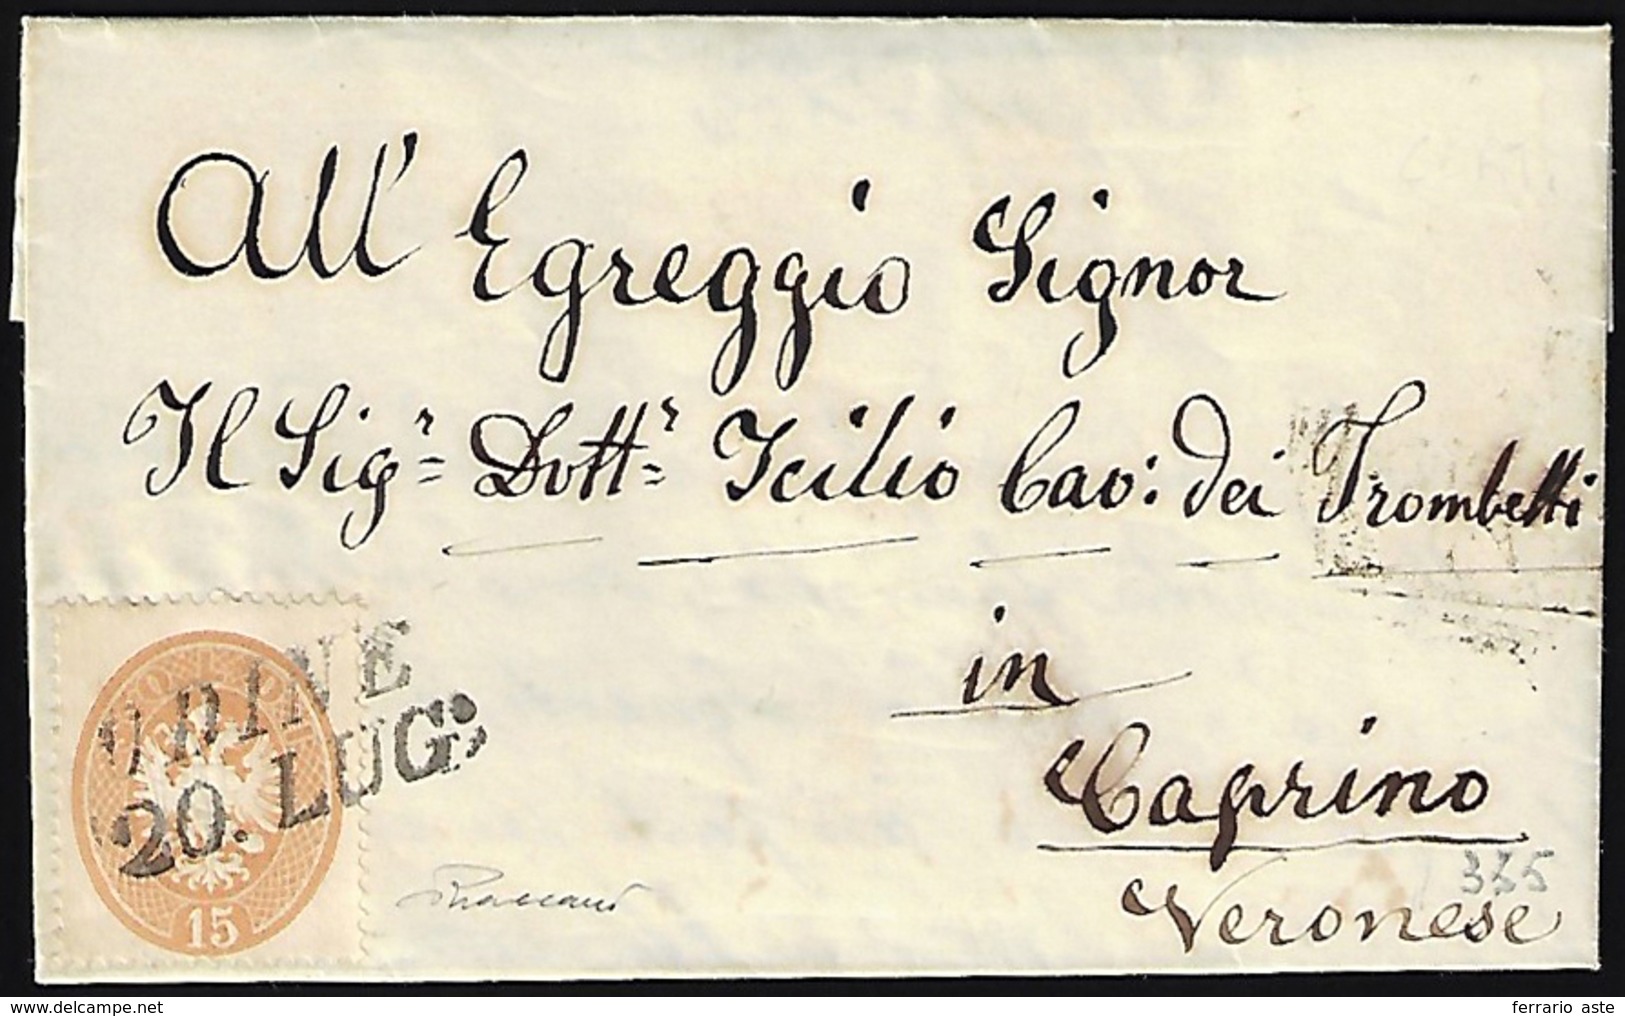 All' Egreggio Signor
Il Sigr= Dottr= Icilio Cav: dei Trombetti
in
Caprino
Veronese
335
UDINE
20. LUG:
15
delcampe.net
ferrario aste